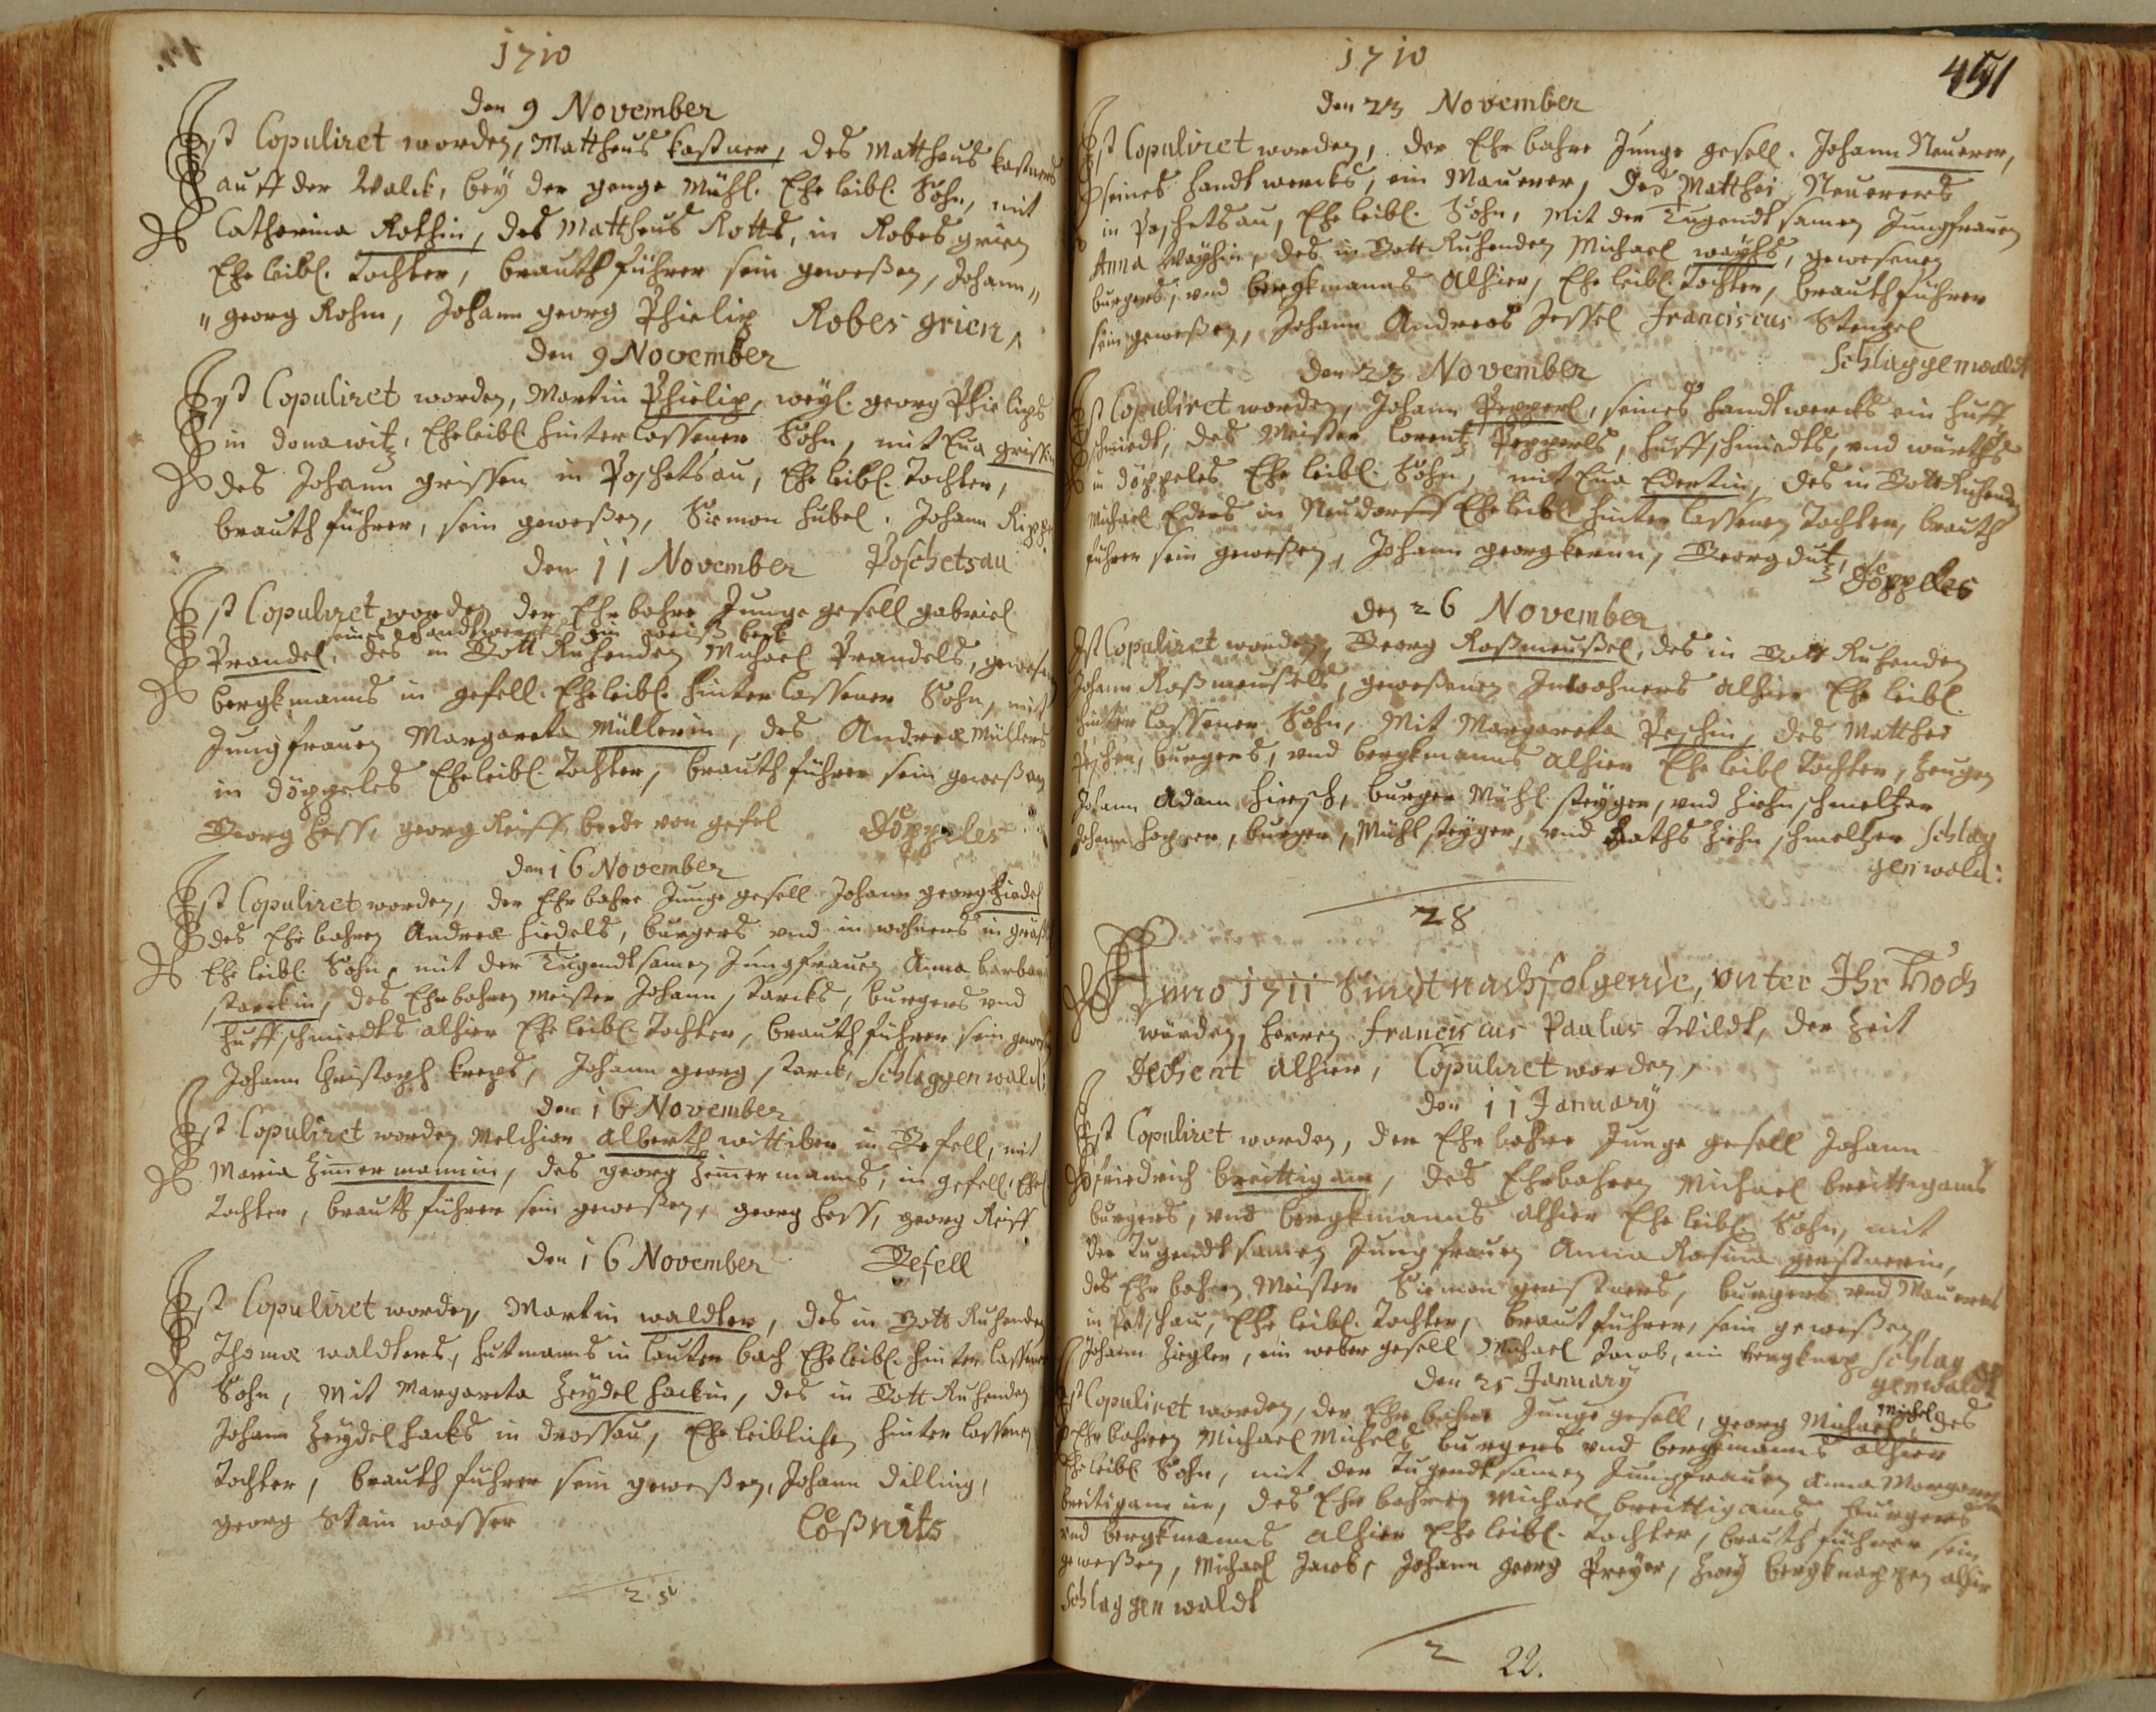 1710
Den 9 November
Ist Copuliret worden, Mattheus Kastner, des Mattheus Kastners
auff der Walck, bey der genge Mühl. Ehe leibl. Sohn, mit
Catherina Rothin, des Mattheus Rotts, in Robes grien
Ehe leibl. Tochter, brauth führer sein geweßen, Johann
georg Rohm, Johann georg Phielip Robes grien,
Den 9 November
Ist Copuliret worden, Martin Phielip, weyl. georg Phielips
in donawitz, Eheleibl. hinterlassener Sohn, mit Eua grissin
des Johann grissen in Poschetsau, Ehe leibl. Tochter,
brauth führer, sein geweßen, Siemon hubel, Johann Ripp
Den 11 November Poschetsau
Ist Copuliret worden der Ehrbahre Junge gesell gabriel
seines Handtwercks ein weiß beck
Prandel, des in Gott Ruhenden Michael Prandels, geweßen
bergkmanns in gesell. Eheleibl. hinter lassener Sohn, mit
Jungfrauen Margareta Müllerin, des Andreæ Müllers
in döppeles Eheleibl. Tochter, brauth führer sein geweßen
Georg Hess, georg Reiff, beede von gesel Döppeles
Den 16 November
Ist Copuliret worden, der Ehrbahre Junge gesell Johann georg Hiedel
des Ehrbahren Andreæ Hiedels, burgers und in wohners in
Ehe leibl. Sohn, mit der Tugendtsamen Jungfrauen Anna barbara
starckin, des Ehrbahren Meister Johann starcks, burgers und
Huffschmiedts alhier Ehe leibl. Tochter, brauth führer sein geweßen
Johann Christoph Kreps, Johann georg starck, Schlaggenwaldt
Den 16 November
Ist Copuliret worden Melchior Alberth wittiber in Gesell, mit
Maria Zimermannin, des georg Zimermanns, in gesell. Ehel.
Tochter, brauth führer sein geweßen, georg Hess, georg Reiff
Den 16 November Gesell
Ist Copuliret worden, Martin waldter, des in Gott Ruhenden
Thomæ waldters, Hutmanns in lauter bach Eheleibl. hinter lassener
Sohn, Mit Margareta Zeydel Hackin, des in Gott Ruhenden
Johann Zeydelhacks in drossau, Eheleiblichen hinter lassenen
Tochter, brauth führer sein geweßen, Johann dilling,
georg Stain wasser Lößnits
25
1710
451
Den 23 November
Ist Copuliret worden, der Ehrbahre Junge gesell. Johann Neuerer,
seines Handtwercks, ein Maurer, des Matthei Neuerers
in Poschetsau, Ehe leibl. Sohn, Mit der Tugendtsamen Jungfrauen
Anna Wayhin, des in Gott Ruhenden Michael wayhs, gewesenen
burgers, und bergkmanns Alhier, Ehe leibl. Tochter, brauthführer
sein geweßen, Johann Andreas Jessel Franciscus Stengel
Schlaggenwaldt
Den 23 November
Ist Copuliret worden, Johann Pepperl, seines Handtwercks ein Huff
schmiedt, des Meister Lorentz Pepperls, Huffschmiedts, und würths
in döppeles Ehe leibl. Sohn, mit Eua Edertin, des in Gott Ruhenden
Michael Eders in Neudorff Eheleibl. hinter lassenen Tochter, brauth
führer sein geweßen, Johann georg, Georg dutz, Döppeles
Den 26 November
Ist Copuliret worden, Georg Roßmeußel, des in Gott Ruhenden
Johann Roßmeußels, geweßenen Inwohners alhier Ehe leibl.
hinter lassener Sohn, Mit Margareta Peschin, des Matthei
Peschen, burgers, und bergkmanns alhier Ehe leibl. Tochter, Zeugen
Johann Adam Hirsch, burger Mühl steyger, und Ziehnschmeltzer
Johann, burger, Mühlsteyger, und Raths Ziehn schmeltzer Schlag
genwald:
28
Anno 1711 Sindt nachfolgende, unter Ihr Hoch
würden, Herren Franciscus Paulus Wildt, der Zeit
Dechent alhier, Copuliret worden,
Den 11 January
Ist Copuliret worden, der Ehrbahre Junge gesell Johann
friedrich breittigam, des Ehrbahren Michael breittigams
burgers, und bergkmanns alhier Ehe leibl. Sohn, mit
der Tugendtsamen Jungfrauen Anna Rosina gerstnerin,
des Ehrbahren Meister Siemon gerstners, burgers und Maurers
in Petschau, Ehe leibl. Tochter, brautführer, sein geweßen,
Johann Ziegler, ein weber gesell Michael Jacob, ein bergknap Schlag
genwaldt
Den 25 January
Michel
Ist Copuliret worden, der Ehrbahre Junge gesell, georg Michael, des
Ehrbahren Michael Michels burgers und bergkmanns alhier
Eheleibl. Sohn, mit der Tugendtsamen Jungfrauen Anna Margareta
breitigamin, des Ehrbahren Michael breittigams burgers
und bergkmanns alhier Ehe leibl. Tochter, brauth führer sein
geweßen, Michael Jacob, Johann georg Preyer, Zwey bergknappen alhier
Schlaggenwaldt
2 22.